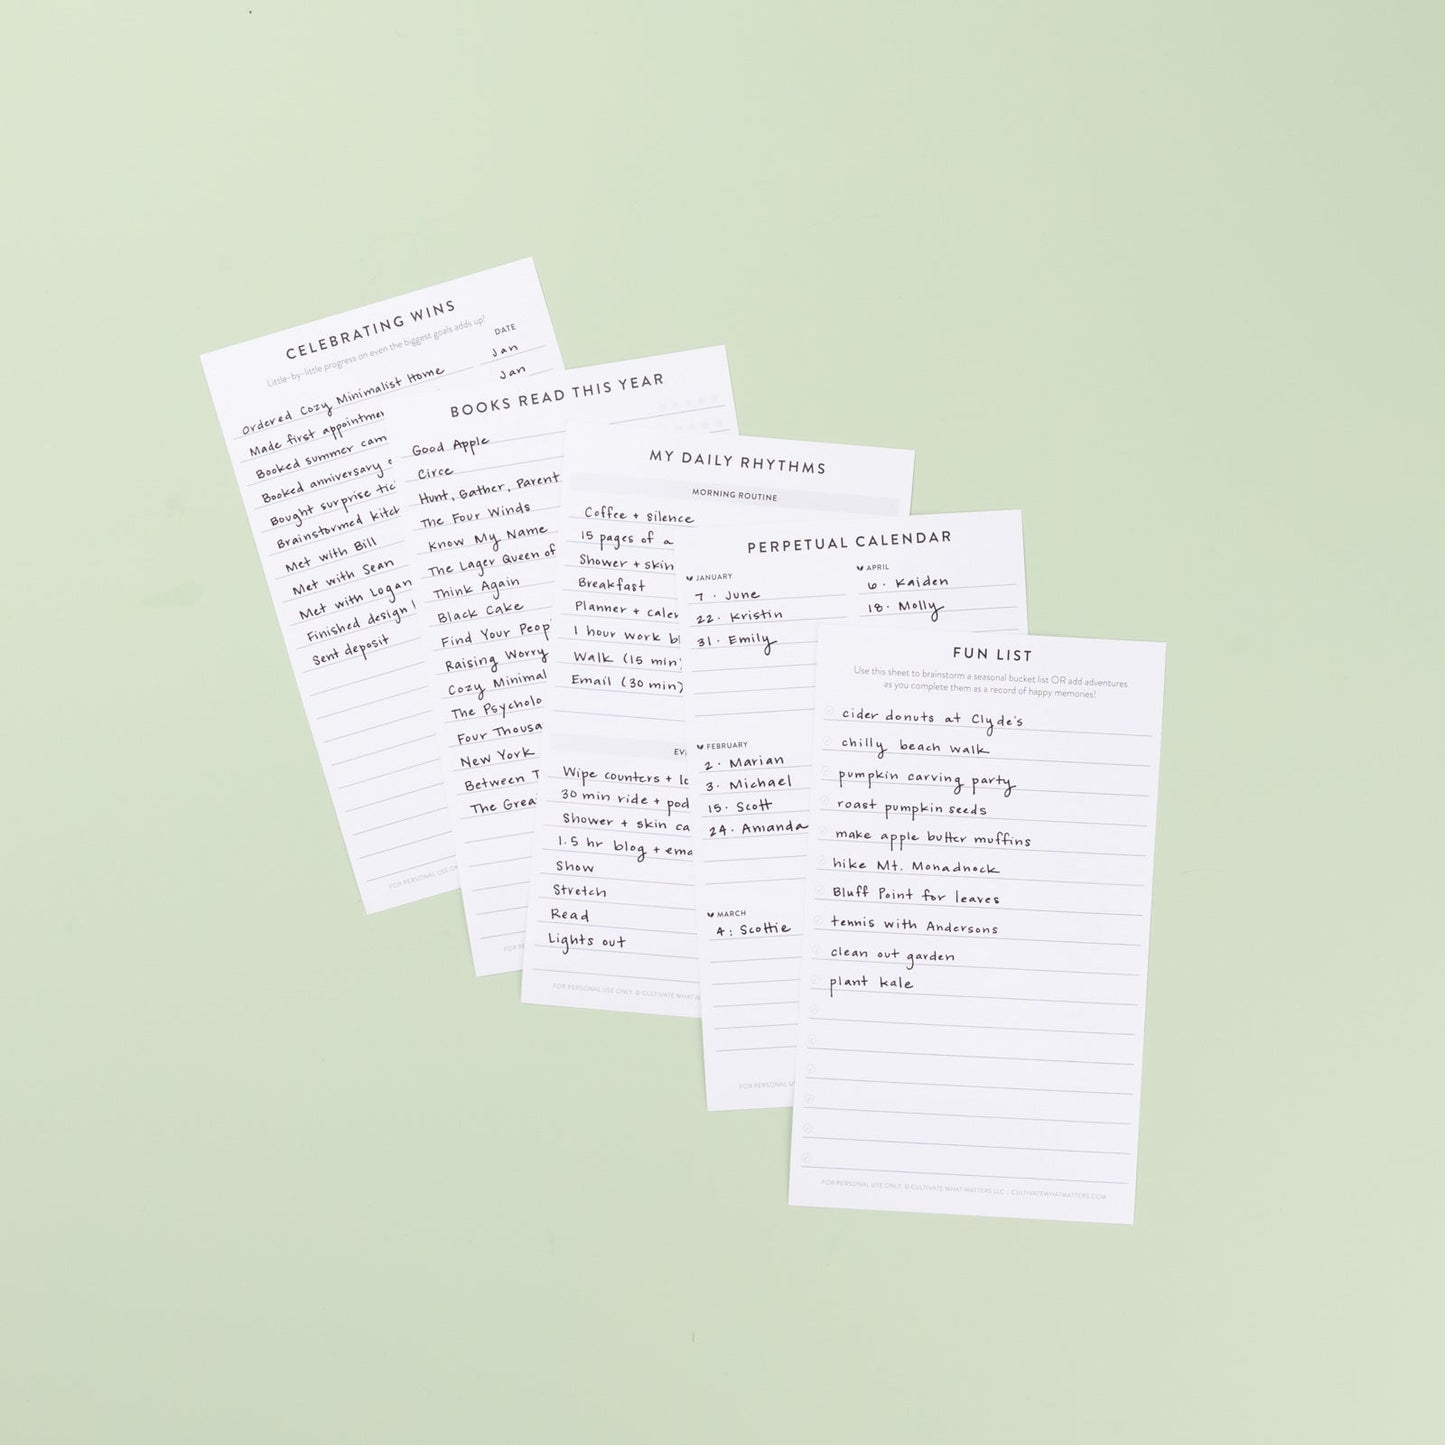 CELEBRATING WINS
Little-by-little progress on even the biggest goals adds up!
DATE
Ordered Cozy Minimalist Home Jan
Made first appointmen Jan
Booked summer cam
Booked anniversary
Bought surprise tic
Brainstormed kitch
Met with Bill
Met with Sean
Met with Logan
Finished design!
Sent deposit
FOR PERSONAL USE ON
BOOKS READ THIS YEAR
Good Apple
Circe
Hunt, Gather, Parent
The Four Winds
Know My Name
The Lager Queen of
Think Again
Black Cake
Find Your Peop
Raising Worry
Cozy Minimal
The Psycholo
Four Thousa
New York
Between T
The Grea
FOR PERSO
MY DAILY RHYTHMS
MORNING ROUTINE
Coffee + silence
15 pages of a
Shower + skin
Breakfast
Planner + caler
1 hour work bl
Walk (15 min)
Email (30 min)
EV
Wipe counters + lo
30 min ride + pod
Shower + skin ca
1.5 hr blog + ema
Show
Stretch
Read
Lights out
FOR PERSONAL USE ONLY. © CULTIVATE WHAT MAT
PERPETUAL CALENDAR
JANUARY
7 · June
22 · Kristin
31 · Emily
APRIL
6 · Kaiden
18 · Molly
FEBRUARY
2 · Marian
3 · Michael
15 · Scott
24 · Amanda
MARCH
4 : Scottie
FOR PERSONAL U
FUN LIST
Use this sheet to brainstorm a seasonal bucket list OR add adventures
as you complete them as a record of happy memories!
cider donuts at Clyde's
chilly beach walk
pumpkin carving party
roast pumpkin seeds
make apple butter muffins
hike Mt. Monadnock
Bluff Point for leaves
tennis with Andersons
clean out garden
plant kale
FOR PERSONAL USE ONLY. © CULTIVATE WHAT MATTERS LLC | CULTIVATEWHATMATTERS.COM